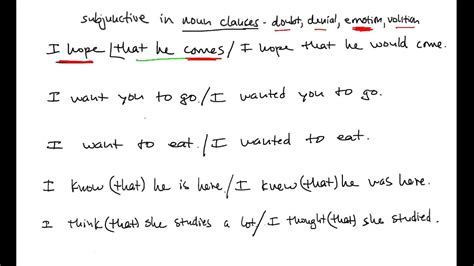 subjunctive in noun clauses - doubt, denial, emotion, volition
I hope that he comes / I hope that he would come.
I want you to go. / I wanted you to go.
I want to eat. / I wanted to eat.
I know (that) he is here. / I knew (that) he was here.
I think (that) she studies a lot / I thought (that) she studied.